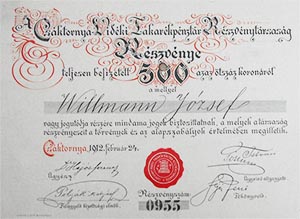 Csáktornya Vidéki Takarékpénztár Részvénytársaság
Részvénye
teljesen befizetett 500 azaz ötszáz koronáról
a melyet
Willmann József
vagy jogutódja részére mindama jogok biztosíttatnak, melyek a társaság
részvényeseit a törvények és az alapszabályok értelmében megilletik.
Csáktornya, 1912. február 24.
Részvényszám:
0955